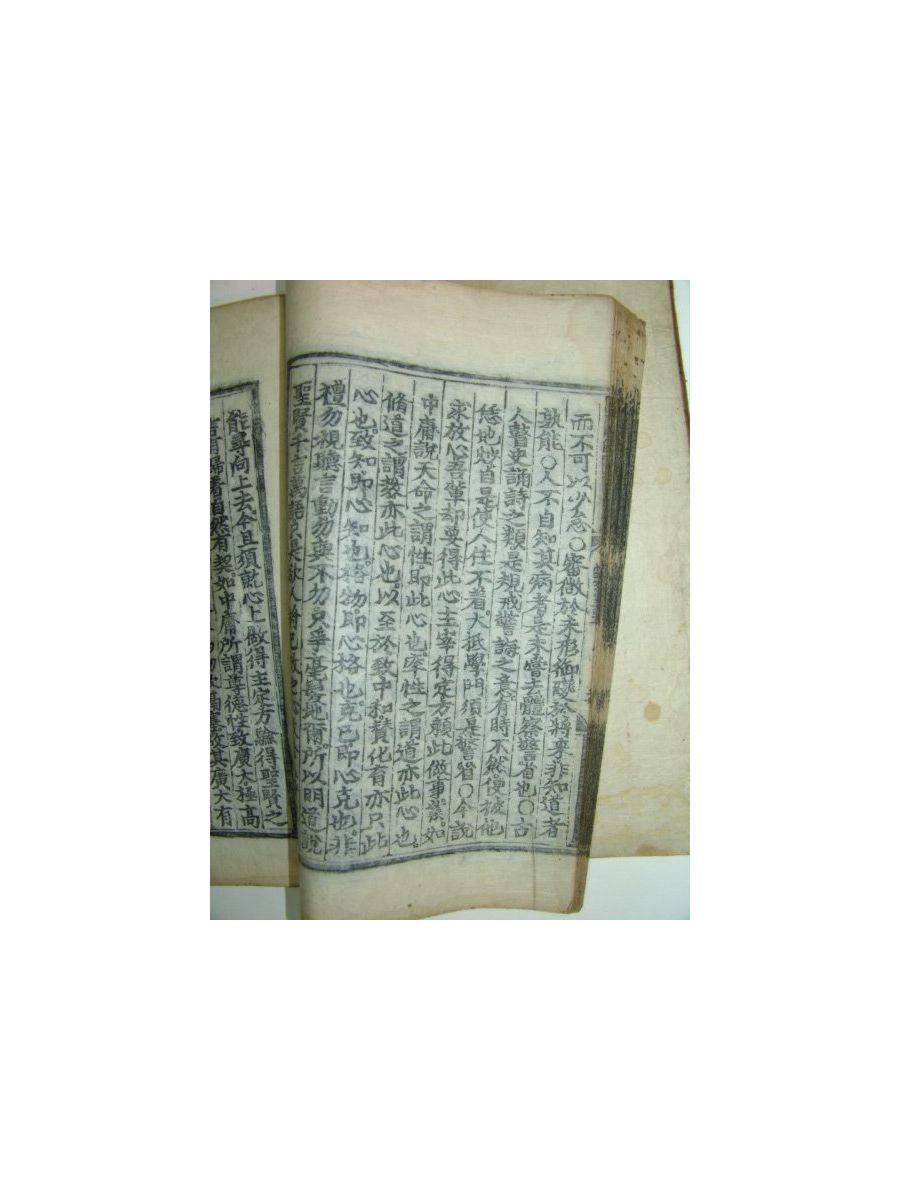 而不可以少怠○審微於未形御變於將來非知道者
孰能○人不自知其病者是未嘗去體察警省也○古
人瞽史誦詩之類是規戒警誨之意有時不然便被他
恁地炒自是使人住不着大抵學問須是警省○今說
求放心吾輩却要得此心主宰得定方賴此做事業如
中庸說天命之謂性即此心也率性之謂道亦此心也
脩道之謂敎亦此心也以至於致中和賛化育亦只此
心也致知即心知也格物即心格也克己即心克也非
禮勿視聽言動勿與不勿只爭毫髮地爾所以明道說
聖賢千言萬語只是欲人將已放之心
能尋向上去今且須就心上做得主定方驗得聖賢之
言有歸着自然有契如中庸所謂尊德性致廣大極高